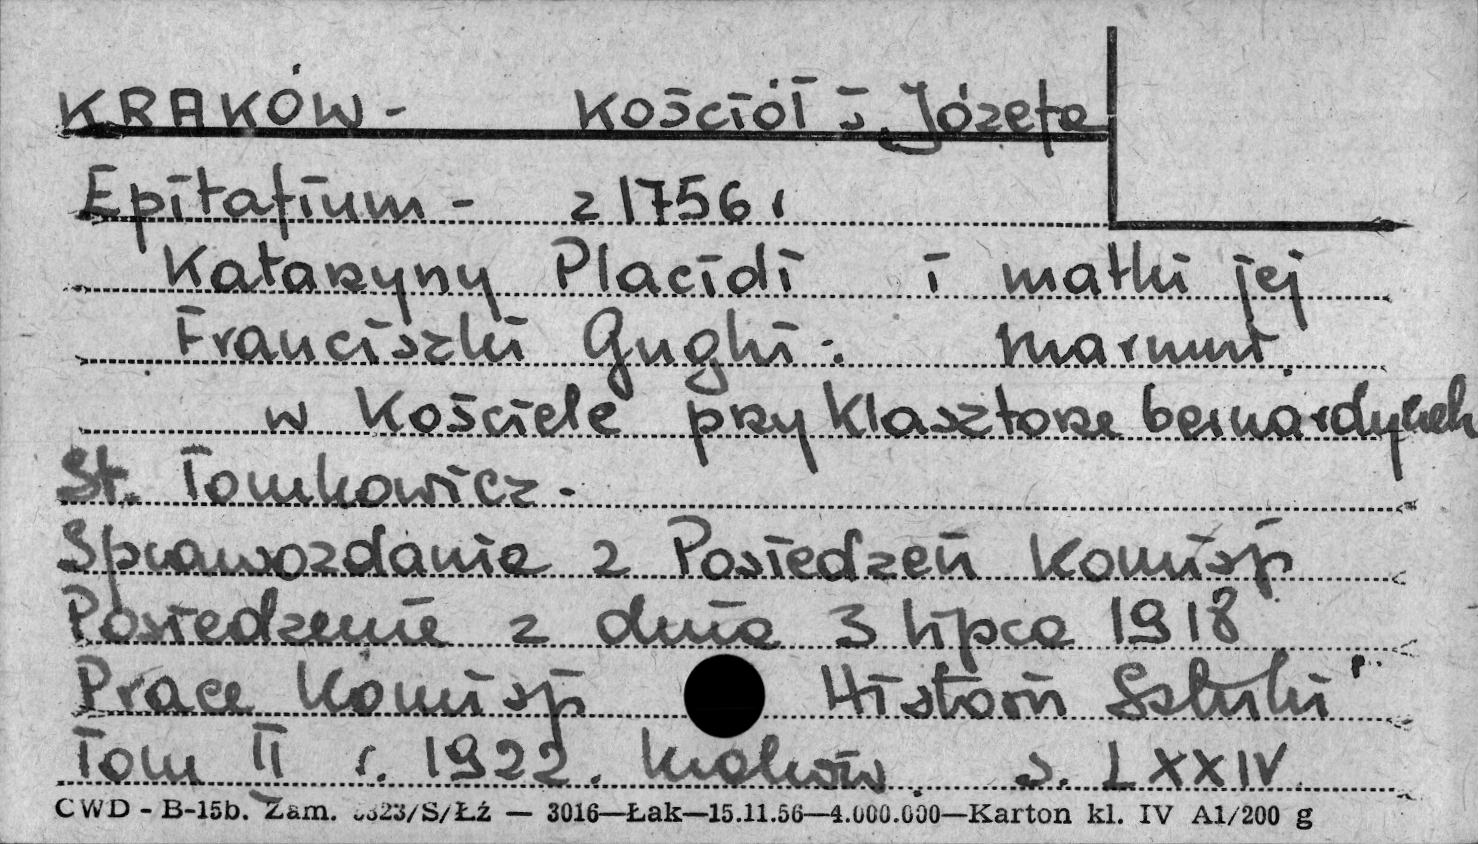 KRAKÓW - Kościół ś. Józefa
Epitafium - z 1756 r
Katarzyny Placidi i matki jej
Franciszki Gughi -. marmur.
w Kościele przy klasztorze bernardynek
St. Tomkowicz -
Sprawozdanie z Posiedzeń Komisji
Posiedzenie z dnia 3 lipca 1918
Prace Komisji Historii Sztuki"
Tom II r. 1922. Kraków. s. LXXIV
CWD - B-15b. Zam. 3323/S/Łź — 3016—Łak—15.11.56—4.000.000—Karton kl. IV A1/200 g